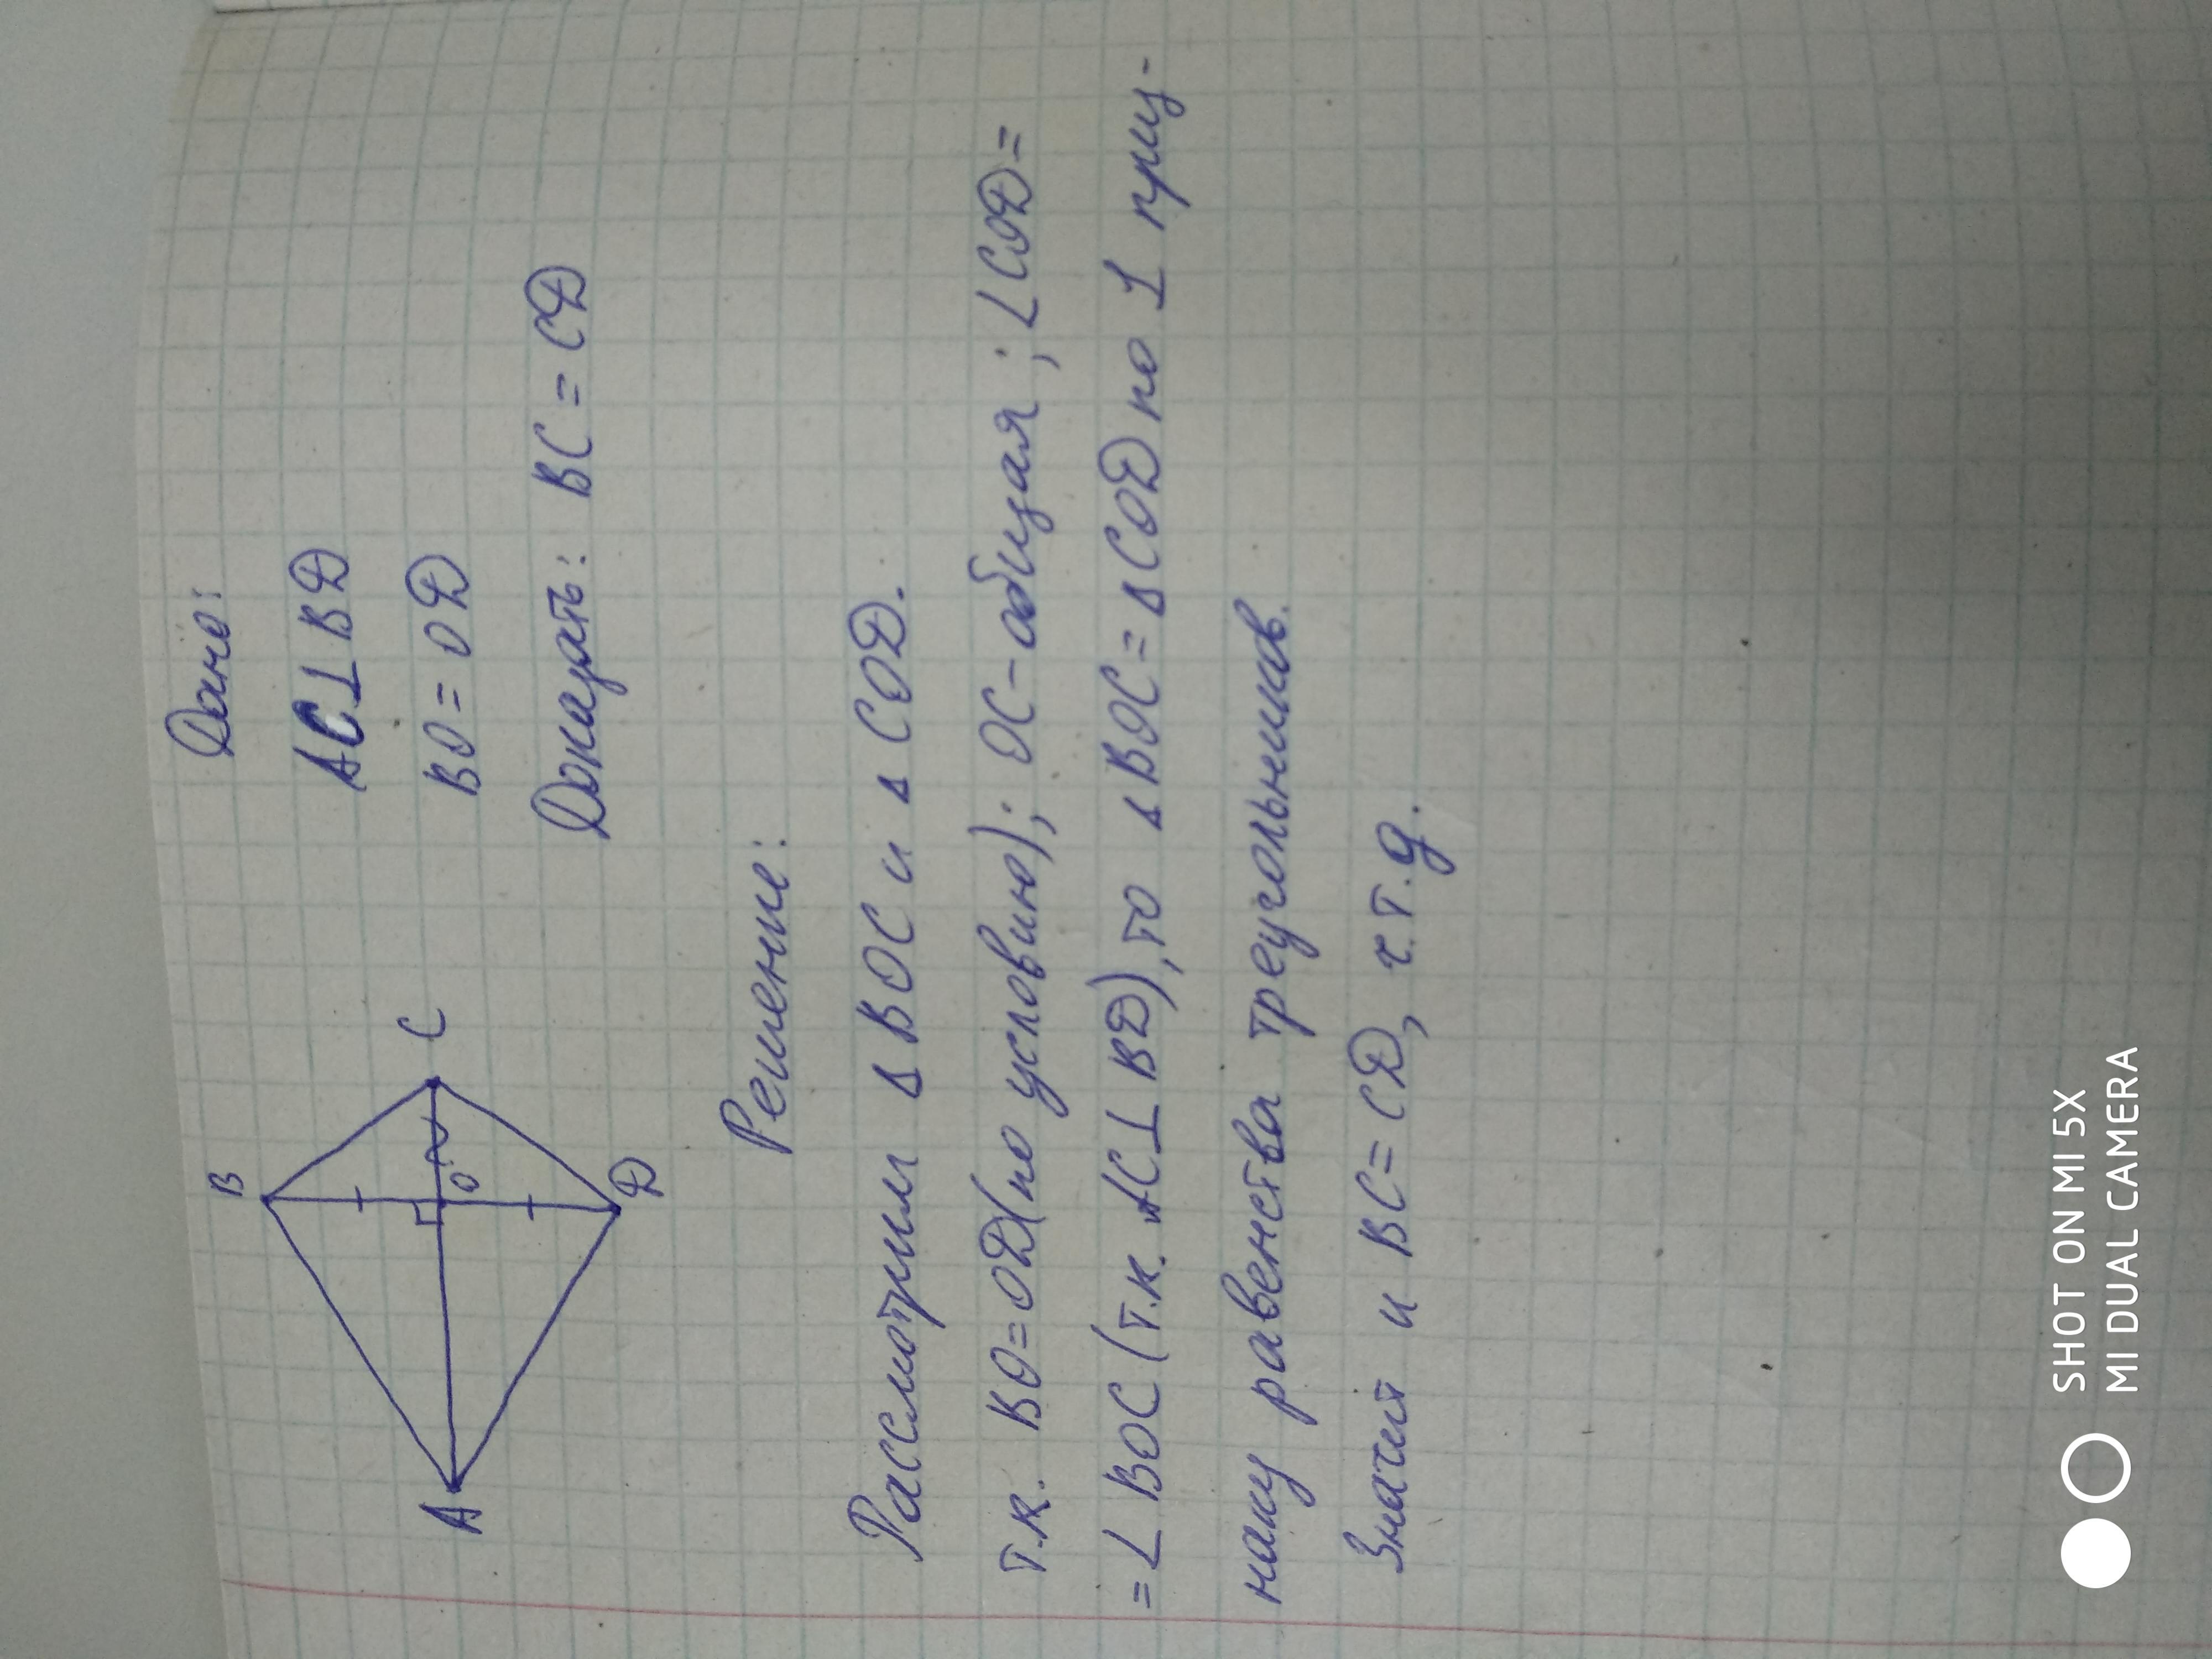 Дано:
B
AC⊥BD
A
O
C
BO=OD
D
Доказать: BC=CD
Решение:
Рассмотрим ΔBOC и ΔCOD.
т.к. BO=OD(по условию); OC-общая; ∠COD=
=∠BOC(т.к. AC⊥BD), то ΔBOC=ΔCOD по 1 приз-
наку равенства треугольников.
Значит и BC=CD, ч.т.д.
SHOT ON MI 5X
MI DUAL CAMERA